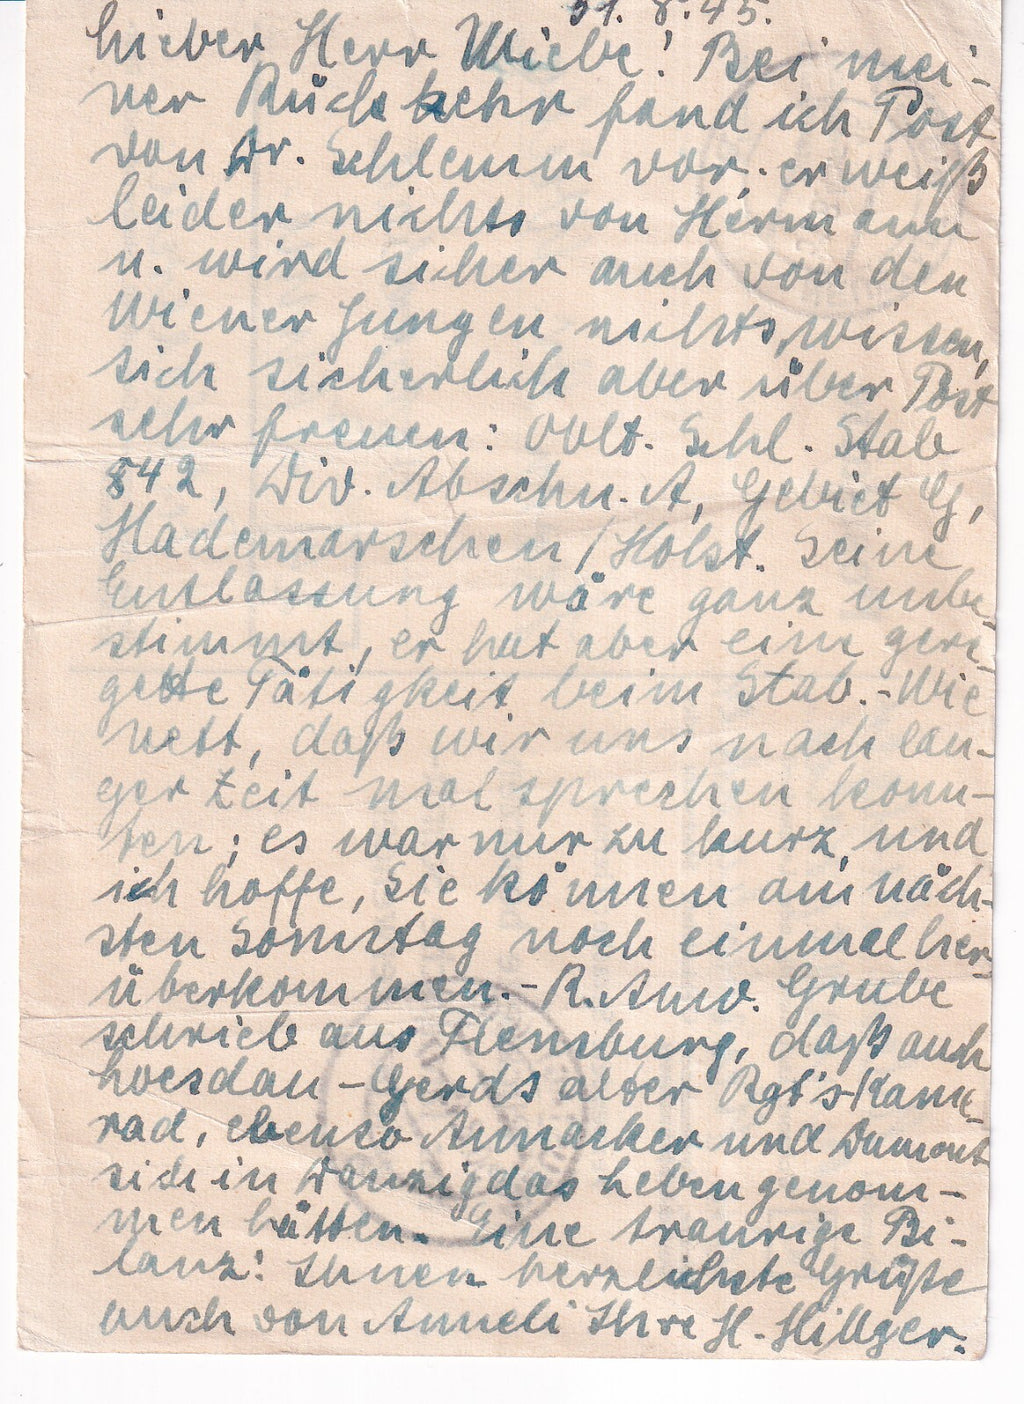 31. 8. 45.
Lieber Herr Wiebe! Bei mei-
ner Rückkehr fand ich Post
von Dr. Schlemm vor; er weiß
leider nichts von Hermann
u. wird sicher auch von den
Wiener Jungen nichts wissen,
sich sicherlich aber über Post
sehr freuen: Oblt. Schl. Stab
842, Div. Abschn. A, Gebiet G,
Hademarschen / Holst. Seine
Entlassung wäre ganz unbe-
stimmt, er hat aber eine gere-
gelte Tätigkeit beim Stab. - Wie
nett, daß wir uns nach lan-
ger Zeit mal sprechen konn-
ten; es war nur zu kurz, und
ich hoffe, Sie können am näch-
sten Sonntag noch einmal her-
überkommen. - R. Anw. Grube
schrieb aus Flensburg, daß auch
Loesdau - Gerds alter Rgt's-Kame-
rad, ebenso Annacker und Dumont
sich in Danzig das Leben genom-
men hätten. Eine traurige Bi-
lanz! Ihnen herzlichste Grüße
auch von Anneli Ihre H. Hillger.